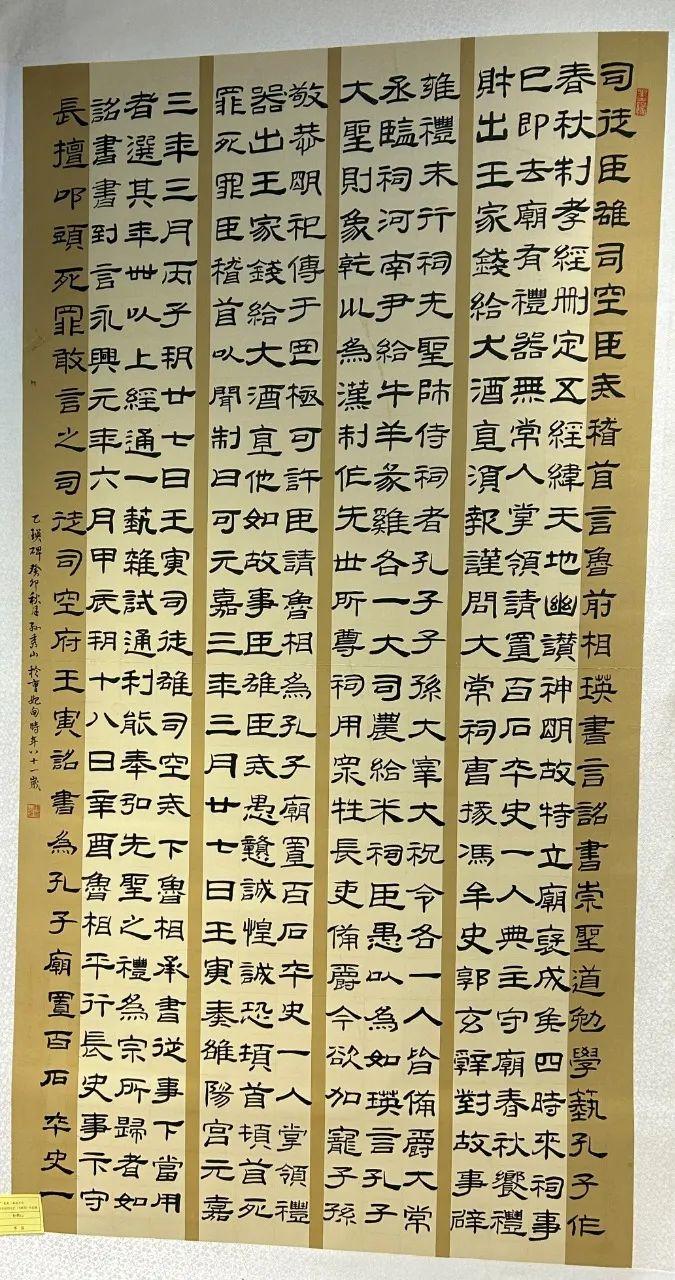 司徒臣雄司空臣戒稽首言魯前相瑛書言詔書崇聖道勉學藝孔子作
春秋制孝經刪定五經緯天地幽讚神明故特立廟褒成矦四時來祠事
已即去廟有禮器無常人掌領請置百石卒史一人典主守廟春秋饗禮
財出王家錢給犬酒直須報謹問大常祠曹掾馮牟史郭玄辭對故事辟
雍禮未行祠先聖師侍祠者孔子子孫大宰大祝令各一人皆備爵大常
丞臨祠河南尹給牛羊豕雞各一大司農給米祠臣愚以為如瑛言孔子
大聖則象乾以為漢制作先世所尊祠用眾牲長吏備爵今欲加寵子孫
敬恭明祀傳于罔極可許臣請魯相為孔子廟置百石卒史一人掌領禮
器出王家錢給大酒直他如故事臣雄臣戒愚戇誠惶誠恐頓首頓首死
罪死罪臣稽首以聞制曰可元嘉三年三月廿七日壬寅奏雒陽宮元嘉
三年三月丙子朔廿七日壬寅司徒雄司空戒下魯相承書從事下當用
者選其年卌以上經通一藝雜試通利能奉弘先聖之禮為宗所歸者如
詔書書到言永興元年六月甲辰朔十八日辛酉魯相平行長史事卞守
長擅叩頭死罪敢言之司徒司空府壬寅詔書為孔子廟置百石卒史一
乙瑛碑 癸卯秋月 孙秀山 於曹妃甸時年八十一歲